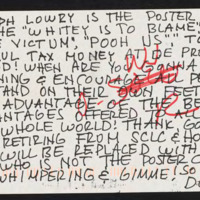 PH LOWRY IS THE POSTER
HE "WHITEY IS TO BLAME"
E VICTIM", "POOH US" " T
UL TAX MONEY AT DE PR
D! WHEN ARE YOU GONNA
HING & ENCOURAGE
STAND ON THEIR OWN FEET
ADVANTAGE THE BE
ANTAGES OFFERED
WHOLE WORLD! THANK GO
RETIRING FROM SCLC & HO
ILL BE REPLACED WITH
WHO IS NOT THE POSTER C
WHIMPERING & GIMME! SO